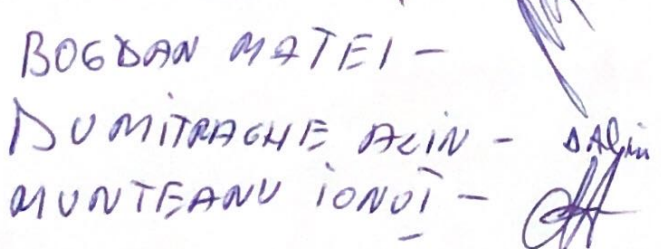 BOGDAN MATEI -
DUMITRACHE ALIN - DAlin
MUNTEANU IONUȚ -